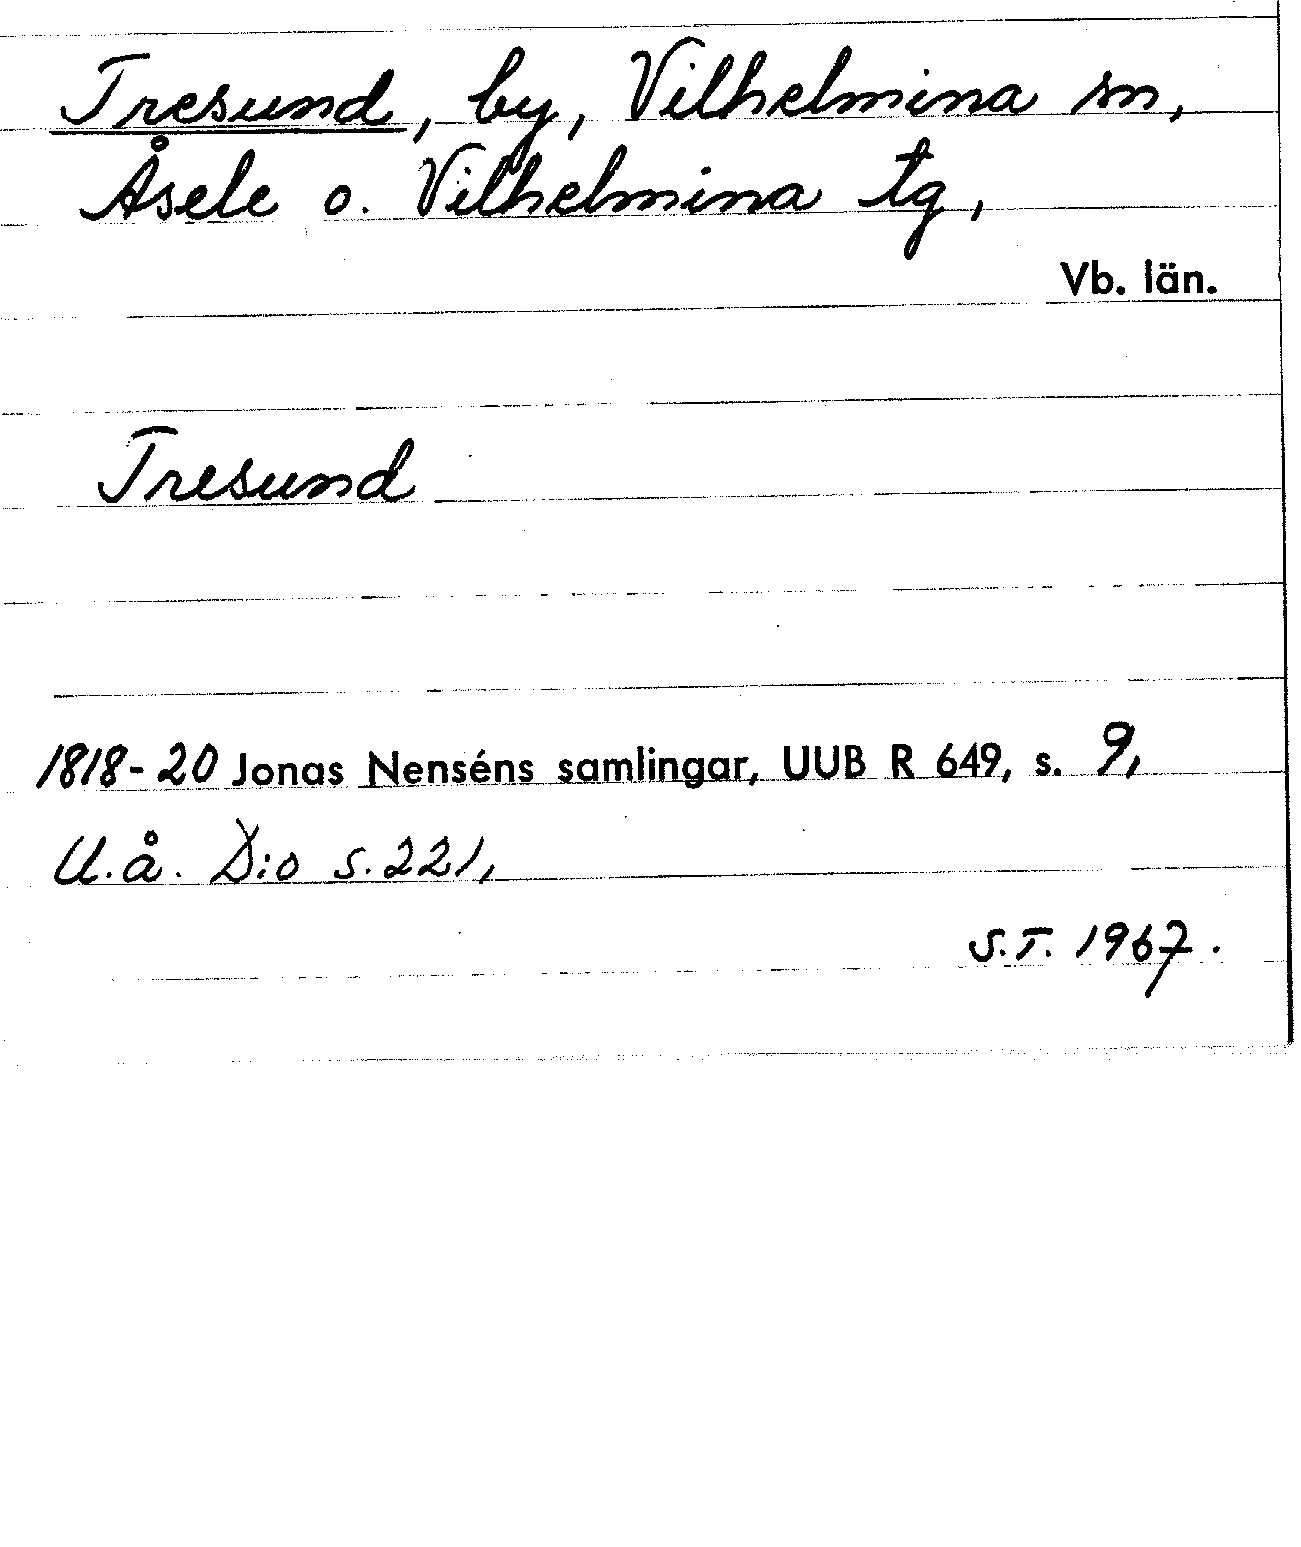 Tresund, by, Vilhelmina sn,
Åsele o. Vilhelmina tg,
Vb. län.
Tresund
1818-20 Jonas Nenséns samlingar, UUB R 649, s. 9,
U.å. D:o s. 221,
S.T. 1967.